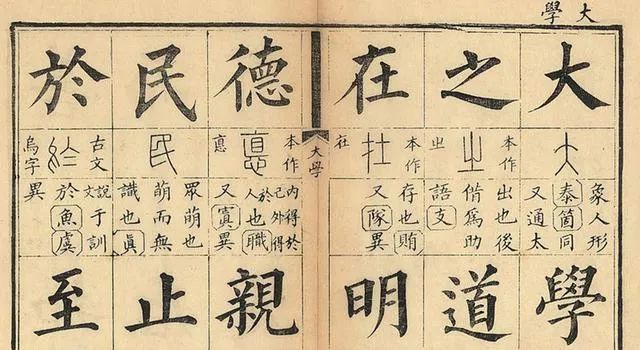 大學
大
大
象人形
泰箇同
又通太
學
之
本作
㞢
出也後
偕為助
語支
道
在
本作
在
存也賄
又隊異
明
大學
德
本作
悳
內得於
己外得
於人也職
又寘異
親
民
民
眾萌也
萌而無
識也眞
止
於
古文
烏字
說文于訓
於魚虞
異
至